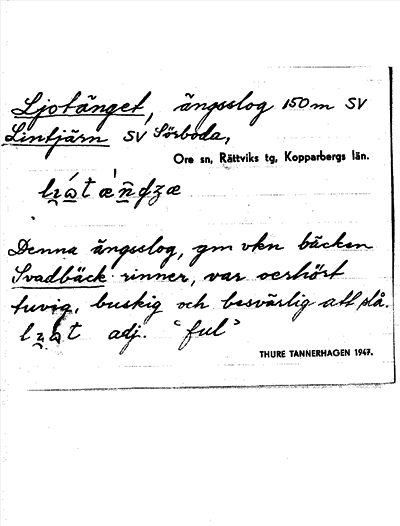 Ljotänget, ängsslog 150 m SV
Lintjärn SV Sörboda,
Ore sn, Rättviks tg, Kopparbergs län.
Denna ängsslog, gm vkn bäcken
Svadbäck rinner, var oerhört
tuvig, buskig och besvärlig att slå.
adj. "ful"
THURE TANNERHAGEN 1947.